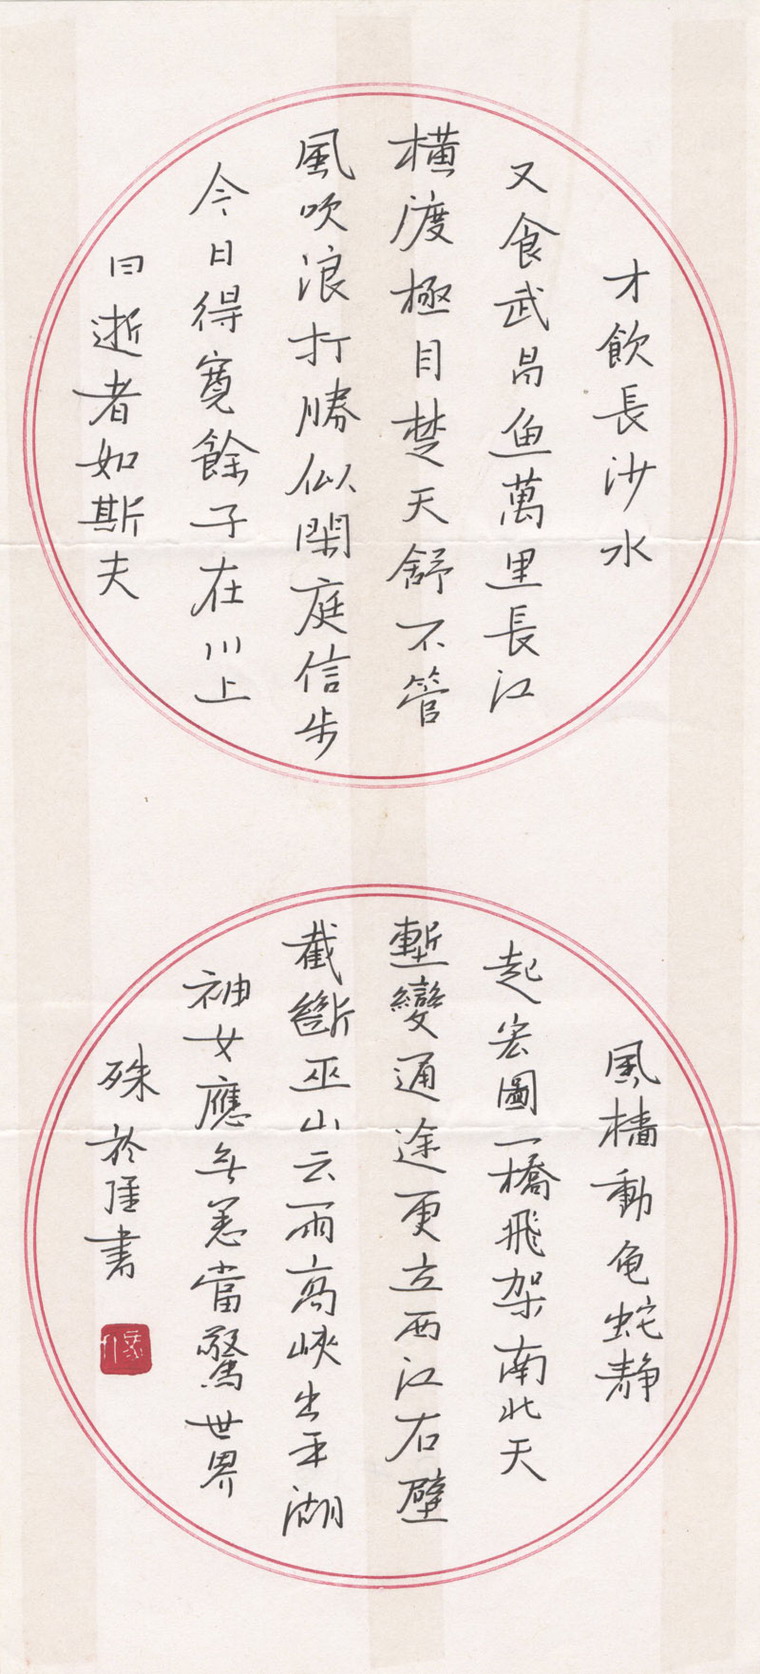 才飲長沙水
又食武昌鱼萬里長江
横渡極目楚天舒不管
風吹浪打勝似閑庭信步
今日得寬餘子在川上
曰逝者如斯夫
風檣動龟蛇静
起宏圖一橋飛架南北天
塹變通途更立西江石壁
截斷巫山云雨高峡出平湖
神女應無恙當驚世界
殊 書